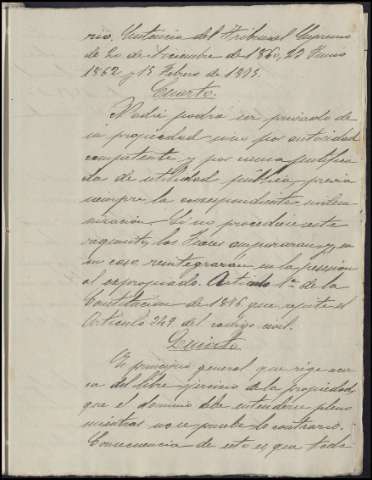 rio, Sentencias del Tribunal Supremo
de 20 de Diciembre de 1860, 23 Junio
1862 y 15 Febro de 1893.
Cuarto.
Nadie podra ser privado de
su propiedad sino por autoridad
competente y por causa justifica
da de utilidad pública, previa
siempre la correspondiente indem
nización. Si no procediere este
requisito, los Jueces ampararan y en
su caso reintegraran en la posesion
al expropiado. Articulo 10 de la
Constitucion de 1876 que repite el
Articulo 349 del codigo civil.
Quinto
Es principio general que rige acer
ca del libre ejercicio de la propiedad,
que el dominio debe entenderse pleno
mientras no se pruebe lo contrario.
Consecuencia de esto es que toda